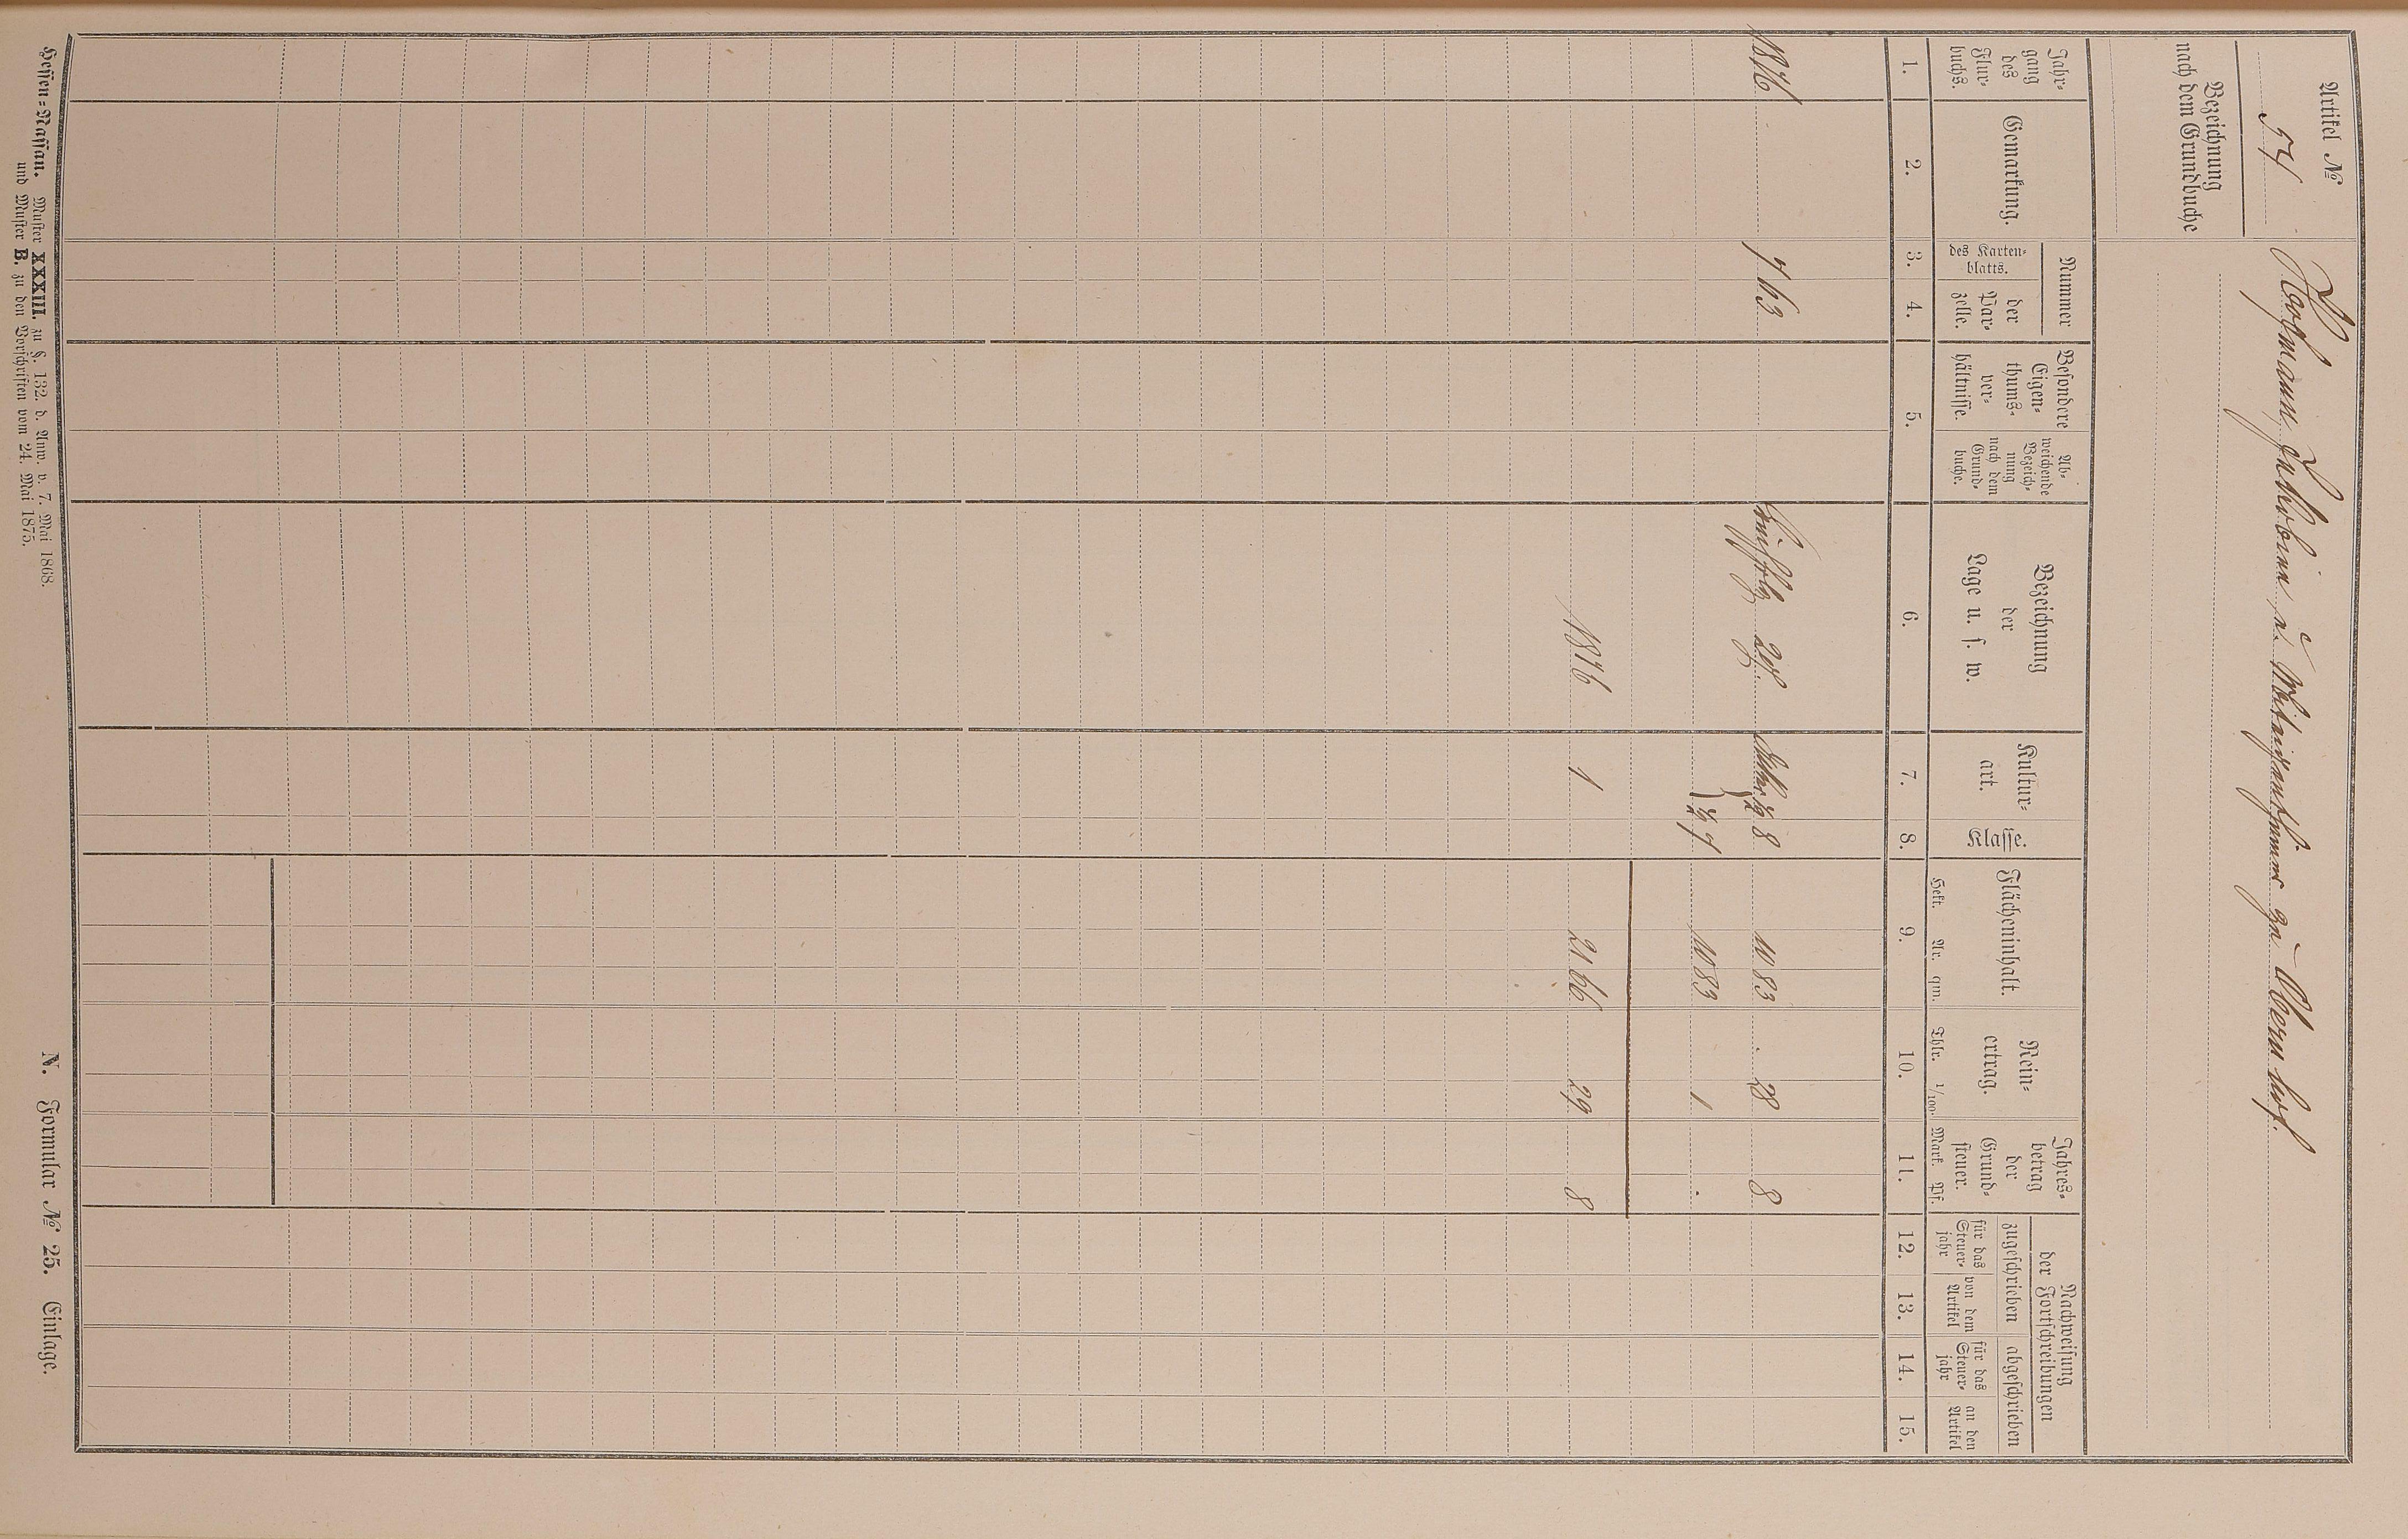 Artikel №
54
Bezeichnung
nach dem Grundbuche
zu Obernhof.
Jahr-
gang
des
Flur-
buchs.
Gemarkung.
Nummer
des Karten-
blatts.
der
Par-
zelle.
Besondere
Eigen-
thums-
ver-
hältnisse.
Ab-
weichende
Bezeich-
nung
nach dem
Grund-
buche.
Bezeichnung
der
Lage u. s. w.
Kultur-
art.
Klasse.
Flächeninhalt.
Hekt. Ar. qm.
Rein-
ertrag.
Thlr. 1/100.
Jahres-
betrag
der
Grund-
steuer.
Mark. Pf.
Nachweisung
der Fortschreibungen
zugeschrieben
für das
Steuer-
jahr
von dem
Artikel
abgeschrieben
für das
Steuer-
jahr
an den
Artikel
1. 2. 3. 4. 5. 6. 7. 8. 9. 10. 11. 12. 13. 14. 15.
1876 7 63 Acker ½ 8 10 83 . 28 8
½ 7 10 83 1 .
1876 1 21 66 29 8
Hessen-Nassau. Muster XXXIII. zu §. 132. d. Anw. v. 7. Mai 1868.
und Muster B. zu den Vorschriften vom 24. Mai 1875.
N. Formular № 25. Einlage.